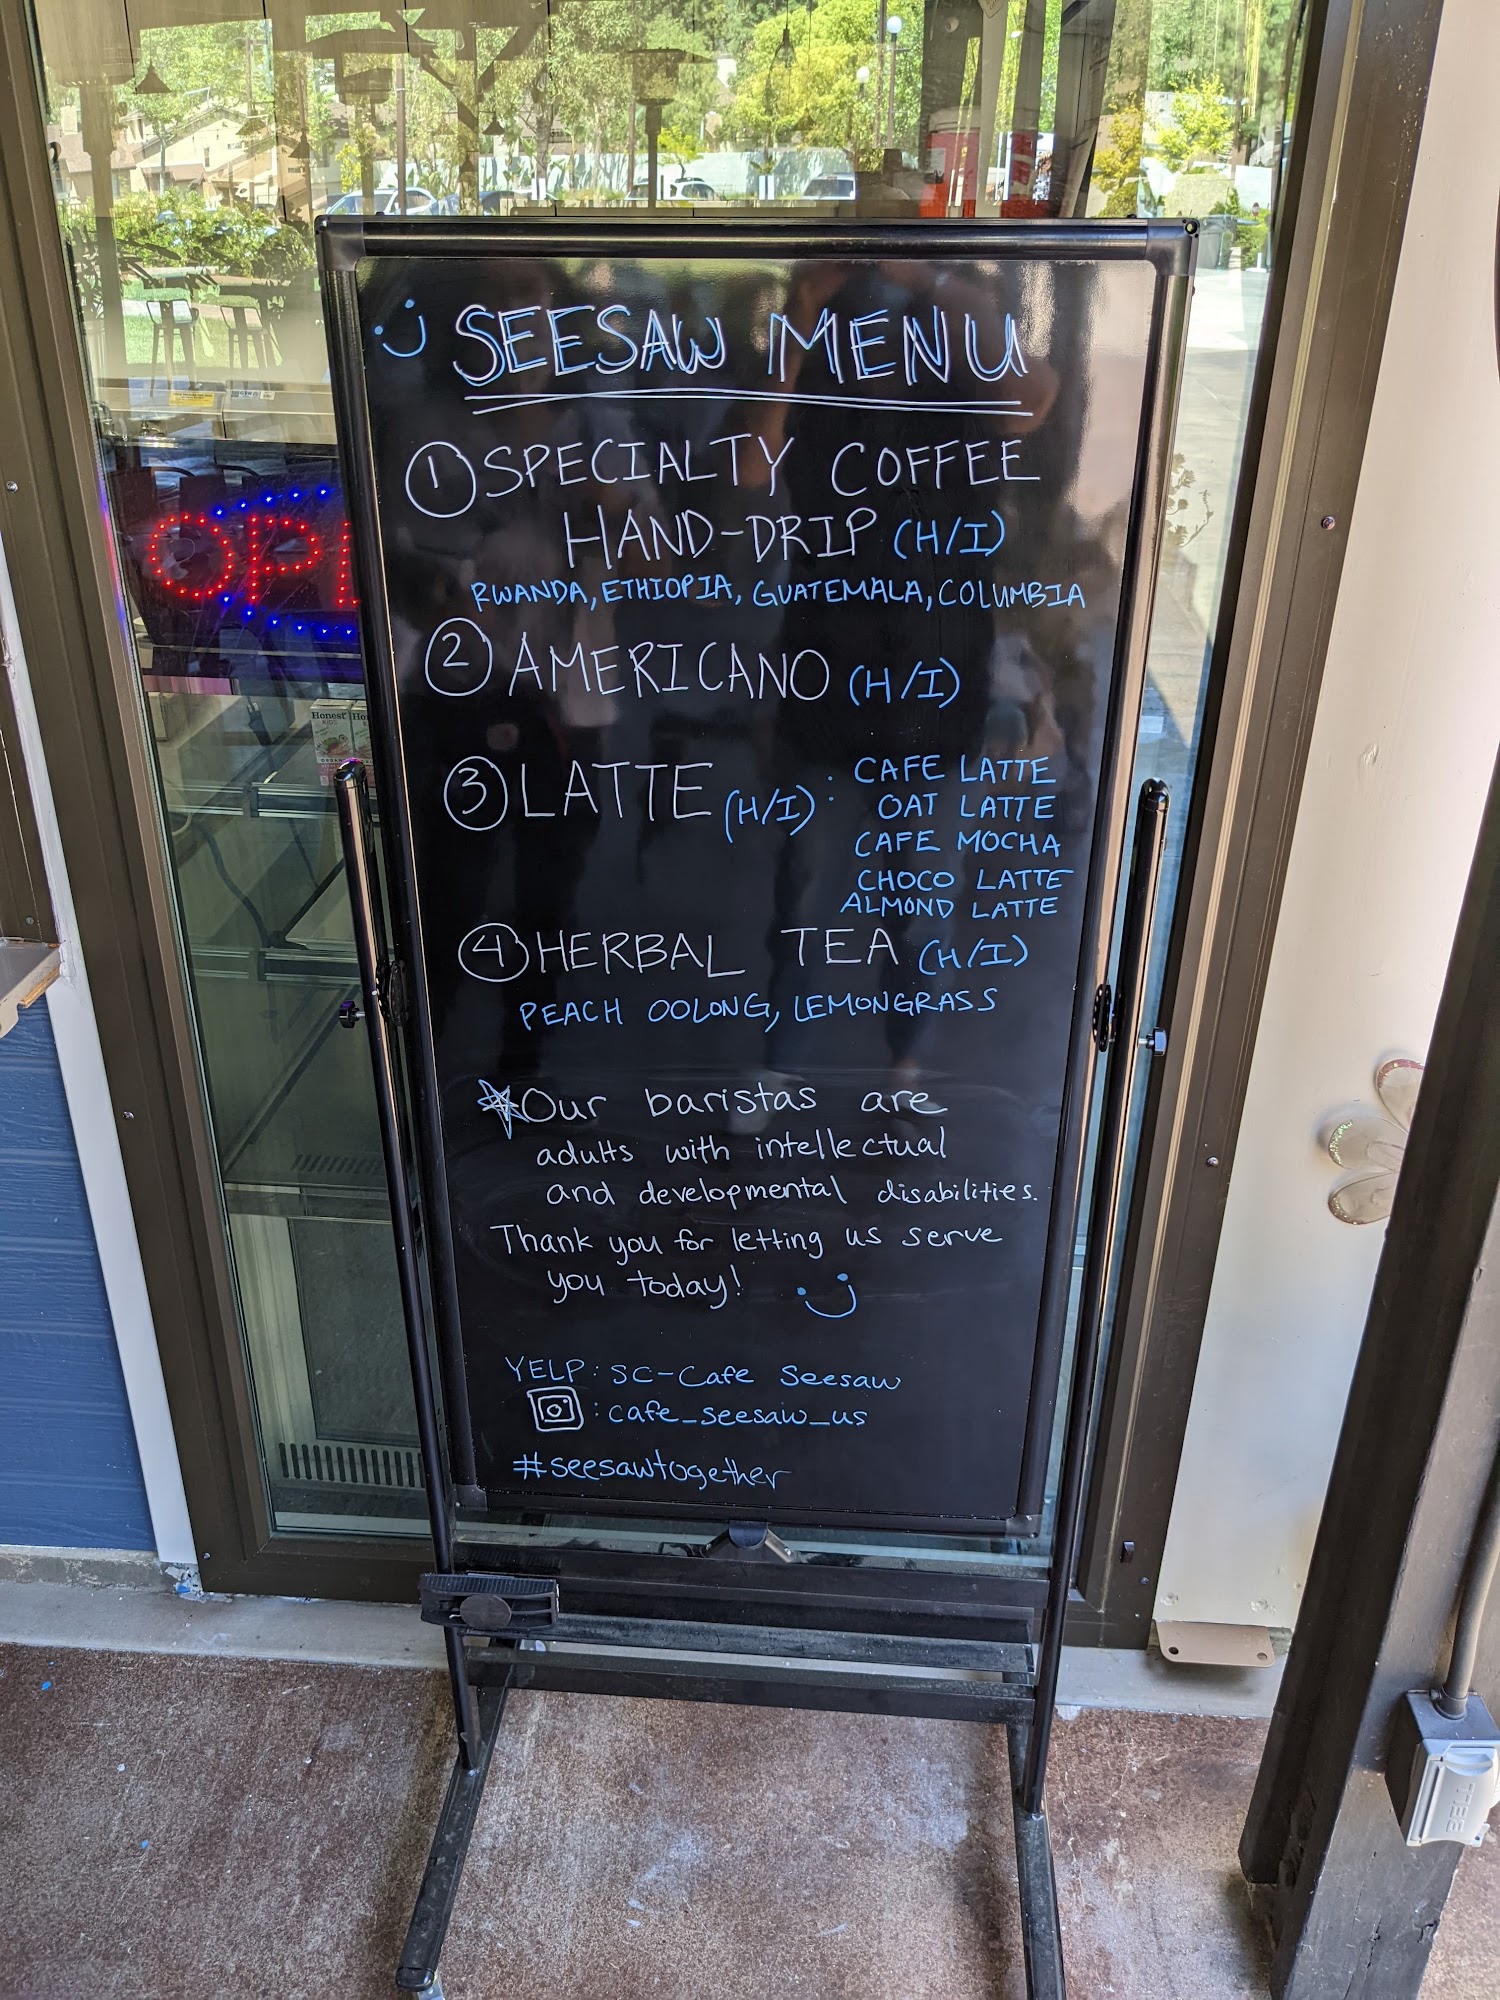 SEESAW MENU
1 SPECIALTY COFFEE
HAND-DRIP (H/I)
RWANDA, ETHIOPIA, GUATEMALA, COLUMBIA
2 AMERICANO (H/I)
3 LATTE (H/I) : CAFE LATTE
OAT LATTE
CAFE MOCHA
CHOCO LATTE
ALMOND LATTE
4 HERBAL TEA (H/I)
PEACH OOLONG, LEMONGRASS
Our baristas are
adults with intellectual
and developmental disabilities.
Thank you for letting us serve
you today!
YELP: SC-Cafe Seesaw
: cafe_seesaw_us
#seesawtogether
OP
Honest Ho
KIDS
BELL